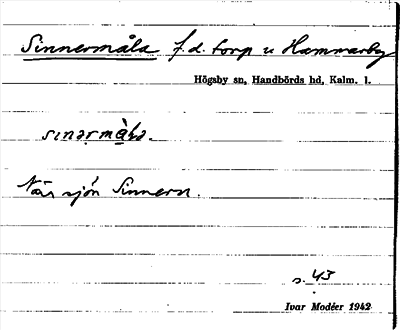 Sinnermåla f.d. torp u Hammarby
Högsby sn, Handbörds hd, Kalm. l.
När sjön Sinnern.
s. 43
Ivar Modéer 1942